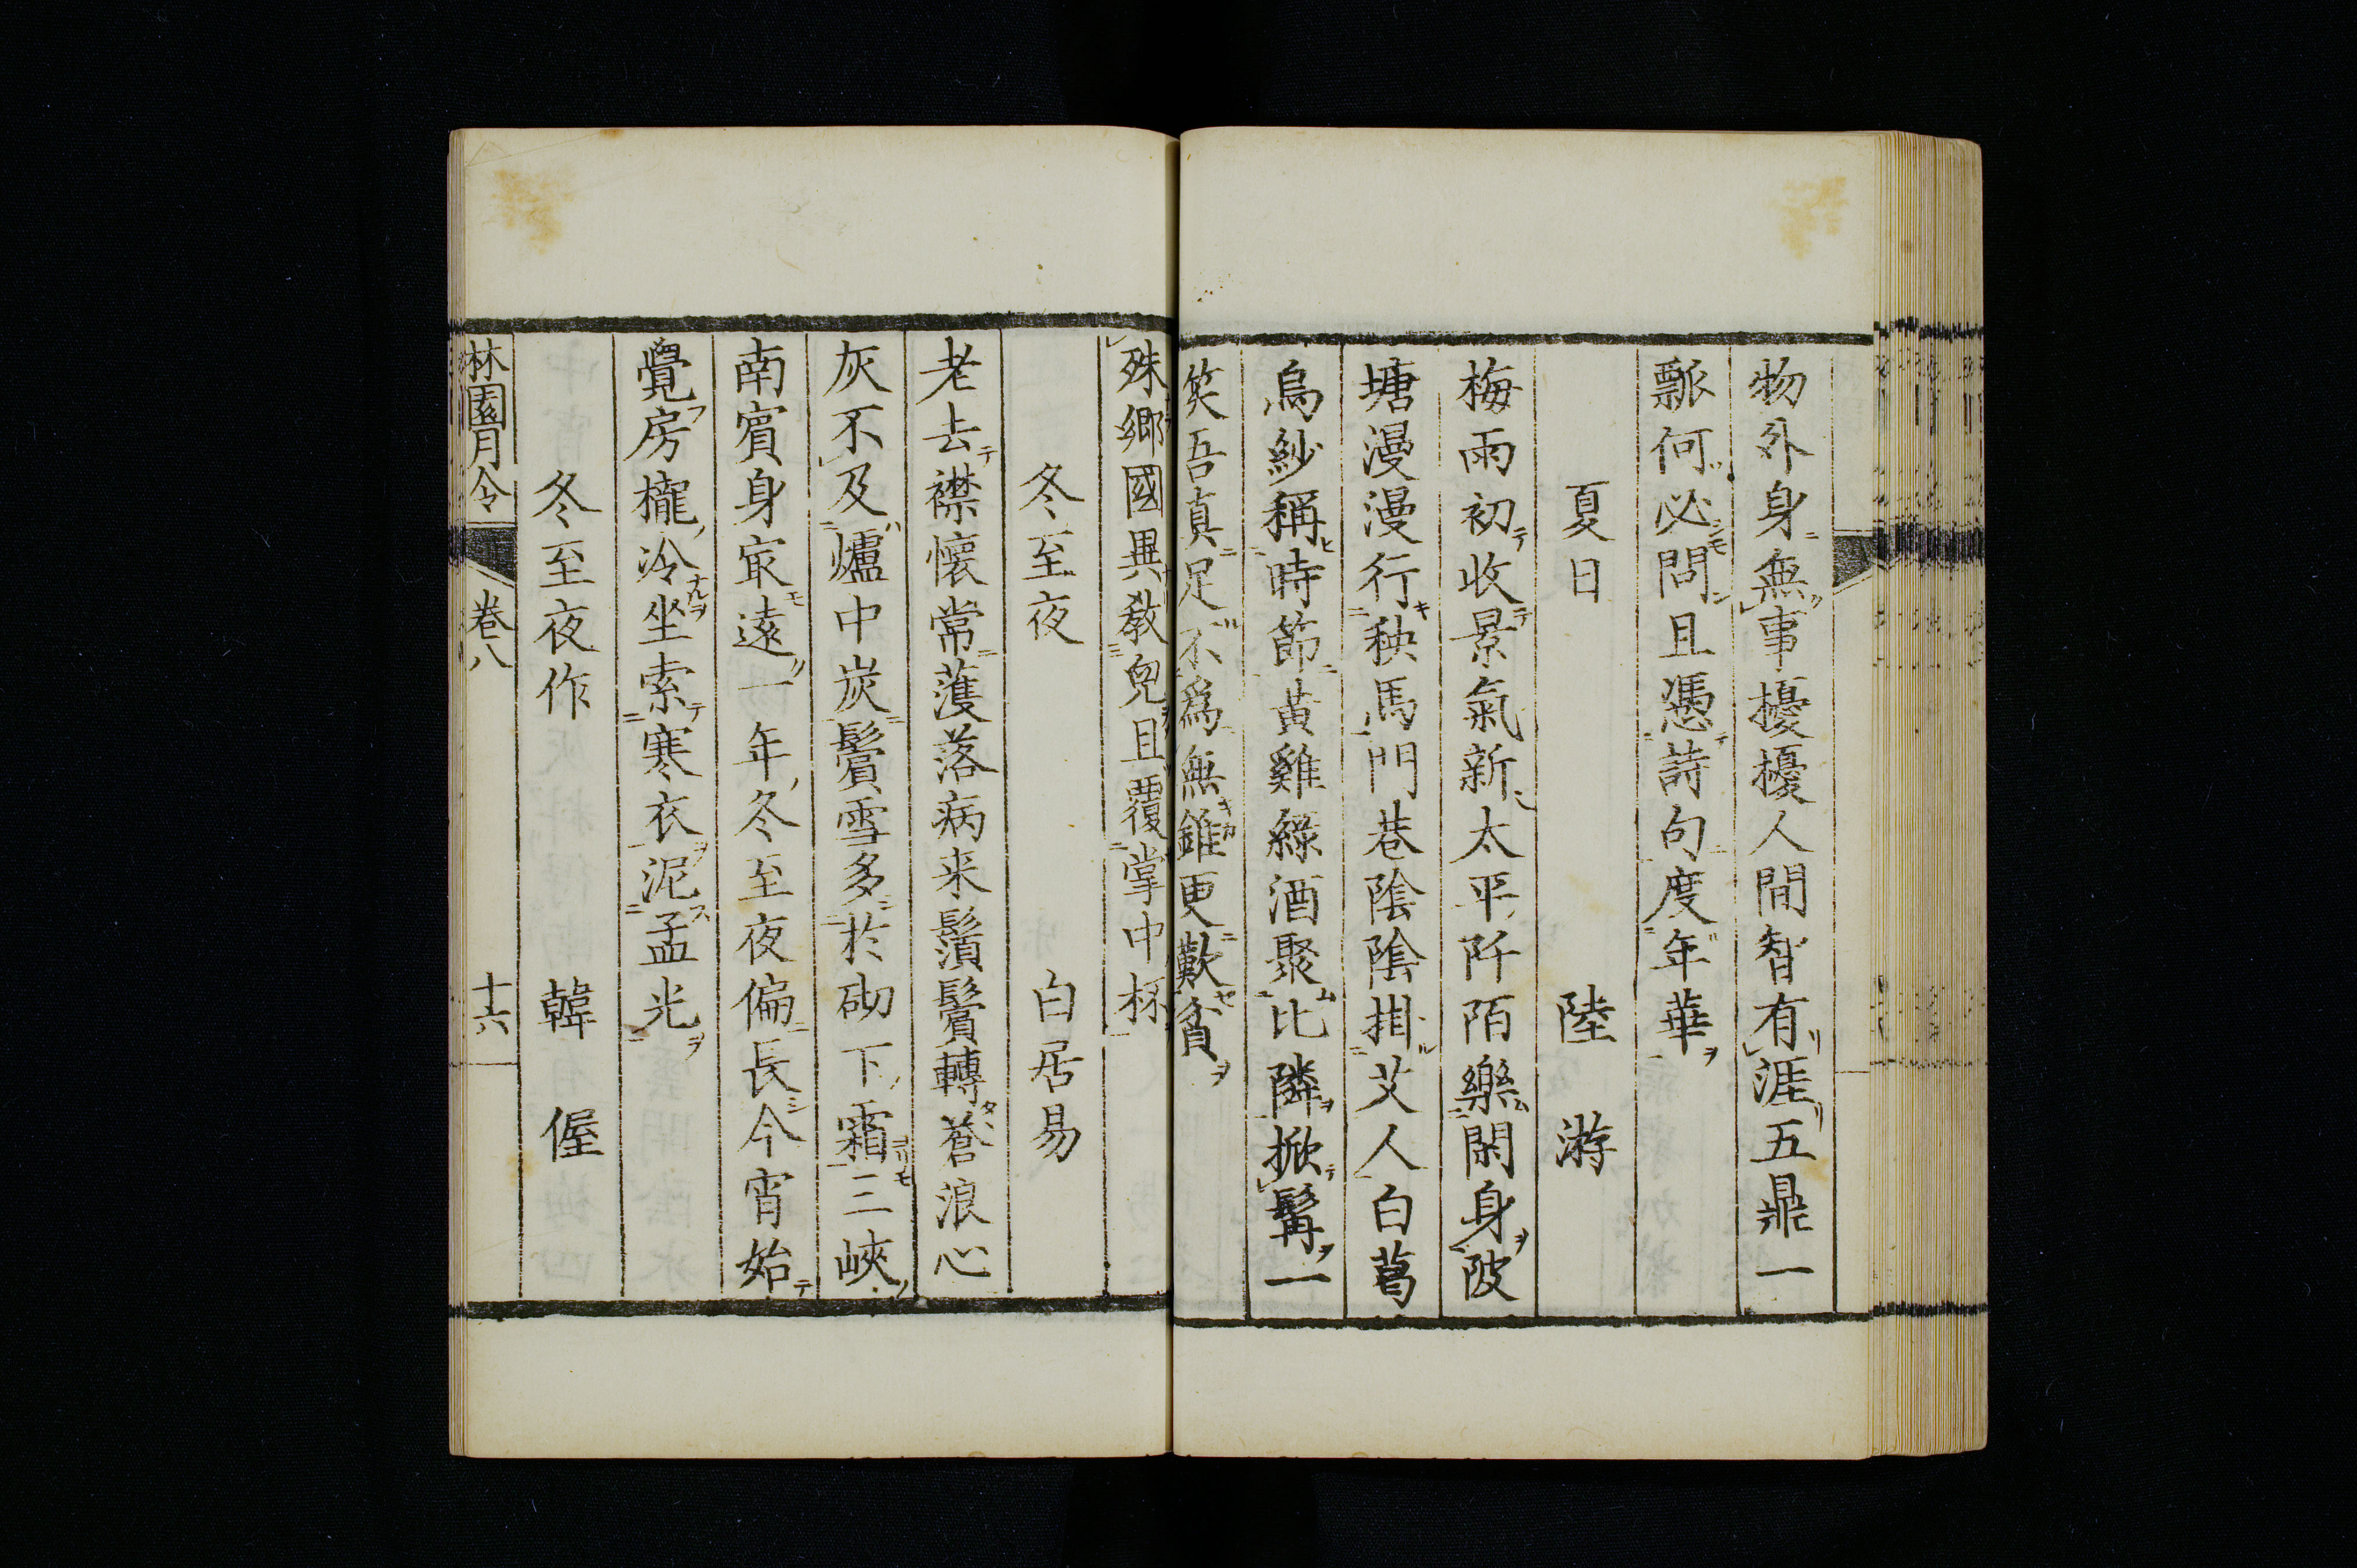 物外身無事擾擾人間智有涯五鼎一
瓢何必問且憑詩句度年華
夏日　陸游
梅雨初收景氣新太平阡陌樂閑身陂
塘漫漫行秧馬門巷陰陰掛艾人白葛
烏紗稱時節黃雞綠酒聚比隣掀髯一
笑吾真足不為無錐更歎貧
殊鄉國異教兒且覆掌中杯
冬至夜　白居易
老去襟懷常濩落病来鬚鬢轉蒼浪心
灰不及爐中炭鬢雪多於砌下霜三峽
南賓身㝡遠一年冬至夜偏長今宵始
覺房櫳冷坐索寒衣泥孟光
冬至夜作　韓偓
林園月令　卷八　十六